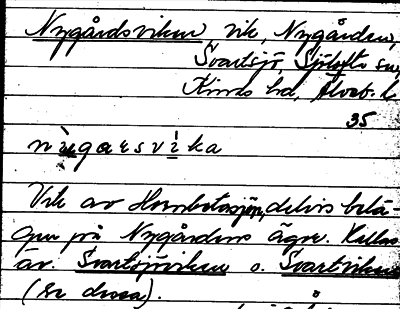 Nygårdsviken, vik, Nygården,
Svartsjö, Sjötofta sn,
Kinds hd, Älvsb. l.
35
nỳgarsvìka
Vik av Hornbetasjön, delvis belä-
gen på Nygårdens ägor. Kallas
äv. Svartsjöviken o. Svartviken
(se dessa).